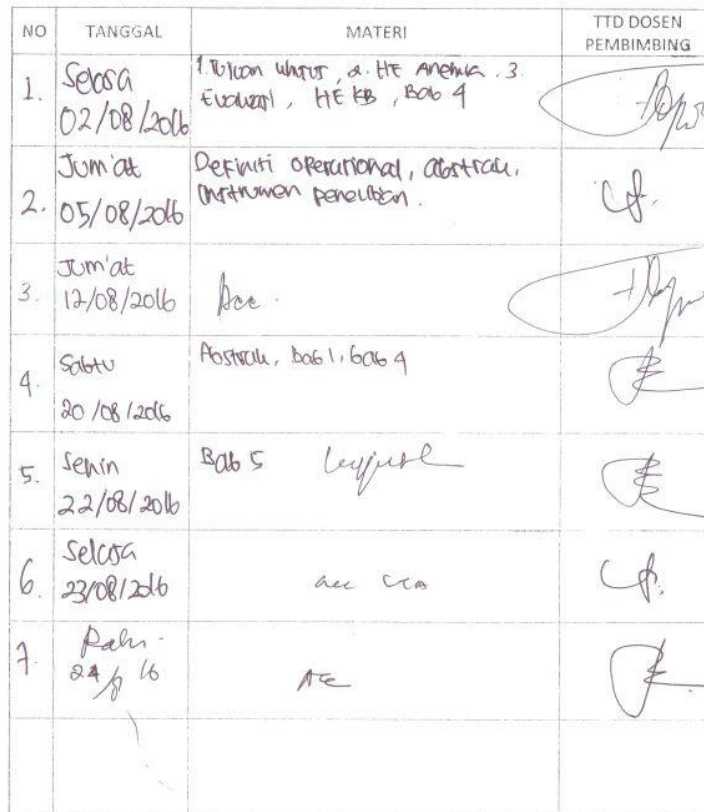 NO TANGGAL MATERI TTD DOSEN
PEMBIMBING
1. Selasa
02/08/2016
HE Anemia . 3.
Evaluasi, HE KB, Bab 4
2. Jum'at
05/08/2016
Definisi operasional, abstrak,
instrumen penelitian.
3. Jum'at
12/08/2016
Acc.
4. Sabtu
20/08/2016
Abstrak, Bab 1, bab 4
5. Senin
22/08/2016
Bab 5
6. Selasa
23/08/2016
acc
7. Rabu
24/8 16
Acc